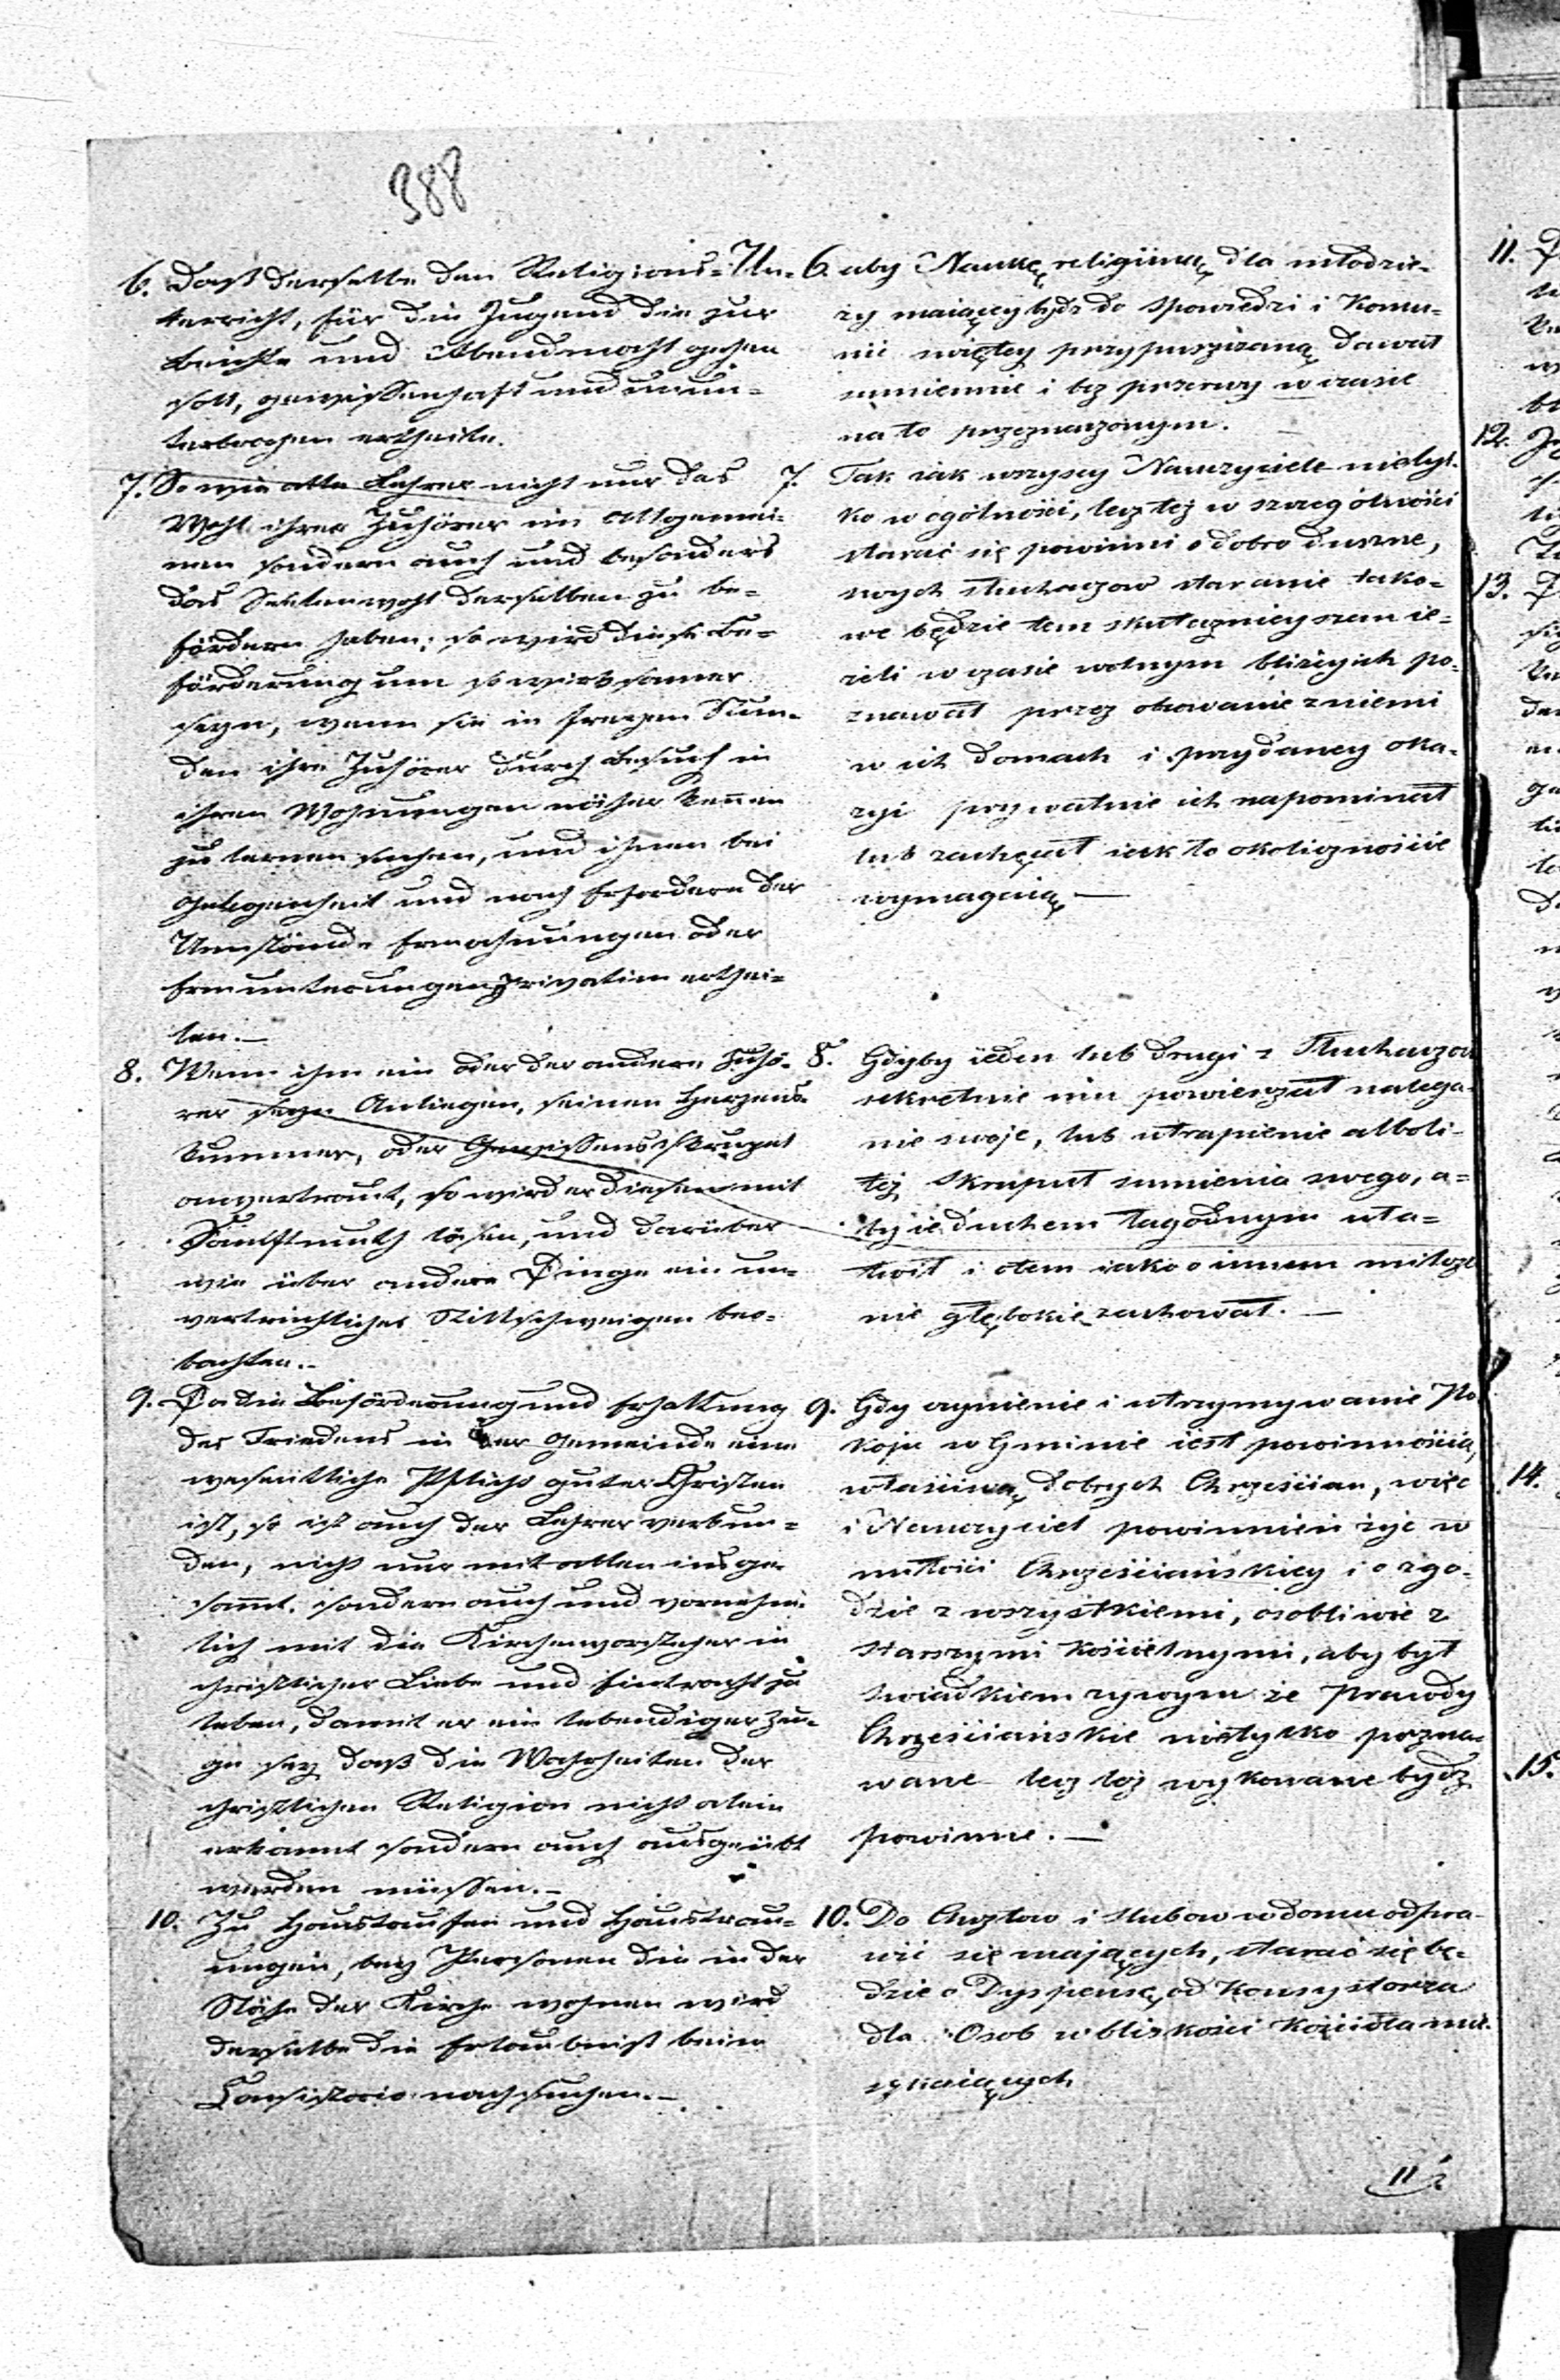 388
6. Daß derselbe den Religions-Un-
terricht, für die Jugend die zur
Beichte und Abendmahl gehen
soll, gewissenhaft und unun-
terbrochen ertheile.
7. So wie alle Lehrer nicht nur das
Wohl ihrer Zuhörer im allgemei-
nen sondern auch und besonders
das Seelenwohl derselben zu be-
fördern haben; so wird diese Be-
förderung um so wirksamer
seyn, wenn sie in freyen Stun-
den ihre Zuhörer durch Besuch in
ihren Wohnungen näher kennen
zu lernen suchen, und ihnen bei
Gelegenheit und nach Erfordern der
Umstände Ermahnungen oder
Ermunterungen privatim erthei-
len.—
8. Wenn ihm ein oder der andere Zuhö-
rer seyn Anliegen, seinen Herzens-
kummer, oder Gewissensskrupel
anvertraut, so wird er diesen mit
Sanftmuth lösen, und darüber
wie über andere Dinge ein un-
verbrüchliches Stillschweigen beo-
bachten.—
9. Da die Beförderung und Erhaltung
des Friedens in der Gemeinde eine
wesentliche Pflicht guter Christen
ist, so ist auch der Lehrer verbun-
den, nicht nur mit allen insge-
samt. sondern auch und vornehm-
lich mit die Kirchenvorsteher in
christlicher Liebe und Eintracht zu
leben, damit er ein lebendiger Zeu-
ge sey daß die Wahrheiten der
christlichen Religion nicht alein
erkannt sondern auch ausgeübt
werden müssen.—
10. Zu Haustaufen und Haustrau-
ungen, bey Personen die in der
Nähe der Kirche wohnen wird
derselbe die Erlaubniß beim
Consistorio nachsuchen.—
6. aby Naukę religiiną dla młodzie-
zy maiącey bydz do spowiedzi i Komu-
nii swiętey przypuszczoną dawał
sumiennie i bez przerwy w czasie
na to przeznaczonym.
7. Tak iak wszyscy Nauczyciele nietyl-
ko w ogólności, lecz też w szczególności
starać się powinni o dobro duszne,
swych słuchaczow staranie tako-
we będzie tem skutecznieyszem ie-
żeli w czasie wolnym bliżey ich po-
znawał przez obcowanie z niemi
w ich domach i przydaney oka-
zyi prywatnie ich napominał
lub zachęcał iak to okoliczności
wymagaią —
8. Gdyby ieden lub drugi z Słuchaczow
sekretnie mu powierzał nalega-
nie swoje, lub utrapienie alboli-
też Skrupuł sumienia swego, a-
by ie duchem łagodnym uła-
twił i otem iako o innem milcze
nie głębokie zachował. —
9. Gdy czynienie i utrzymywanie Po
koju w Gminie iest powinnością,
właściwą dobrych Chrześcian, więc
i Nauczyciel powinnien żyć w
miłości Chrześciańskiey i o zgo-
dzie z wszystkiemi, osobliwie z
Starszymi Kościelnymi, aby był
swiadkiem żywym że Prawdy
Chrześciańskie nietylko pozna-
wane lecz też wykonane bydz
powinne. —
10. Do Chrztow i slubow w domu odpra-
wić się mających, starać się bę-
dzie o Dyspensę od Konsystorza
dla Osob w bliskości Kościoła mie-
szkaiących
11
11.
12.
13.
14.
15.